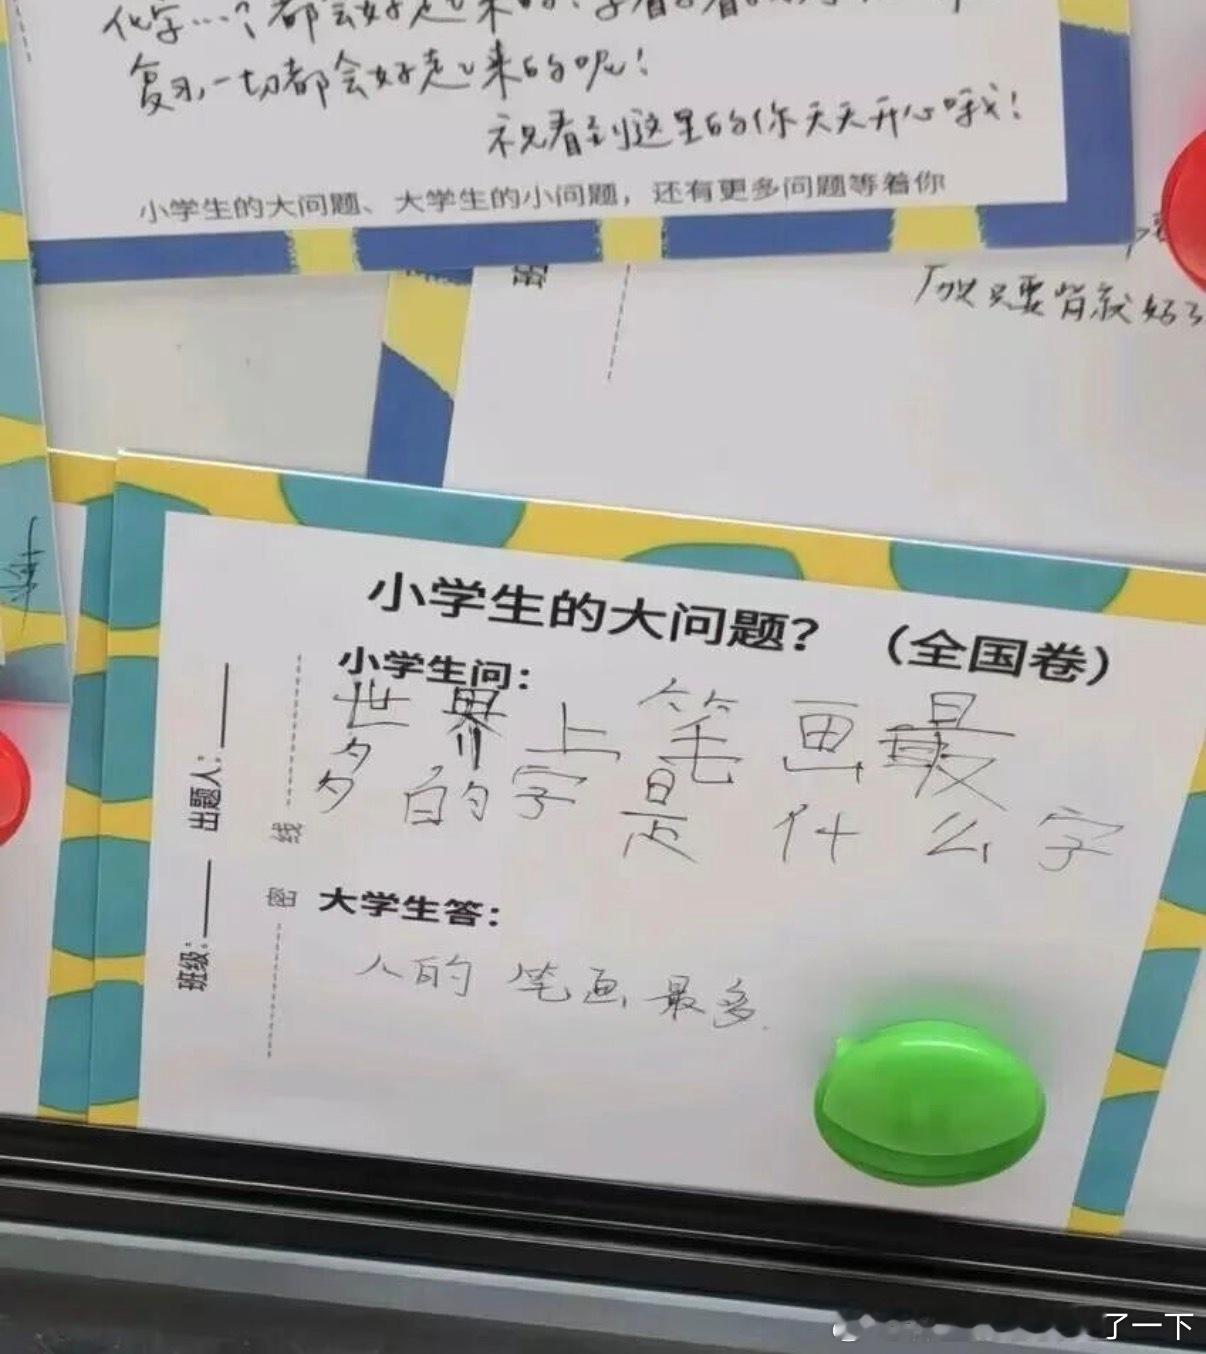 都会好起来的
复习，一切都会好起来的呢！
祝看到这里的你天天开心哦！
小学生的大问题、大学生的小问题，还有更多问题等着你
密
所以只要背就好了
小学生的大问题？（全国卷）
小学生问：
世界上笔画最
多的字是什么字
大学生答：
人的笔画最多.
出题人：
班级：
线
密
了一下